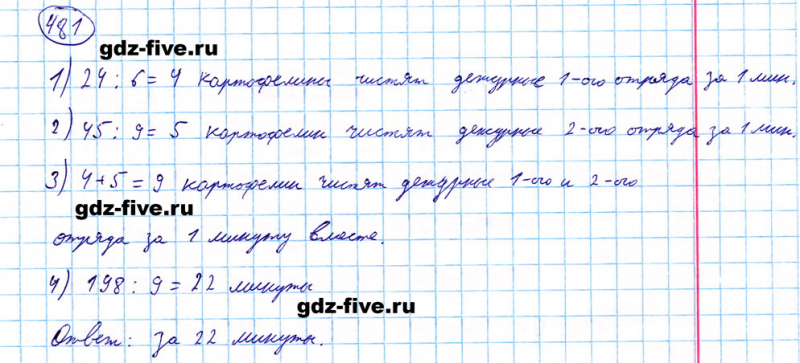 481
gdz-five.ru
1) 24 : 6 = 4 картофелины чистят дежурные 1-ого отряда за 1 мин.
2) 45 : 9 = 5 картофелин чистят дежурные 2-ого отряда за 1 мин.
3) 4 + 5 = 9 картофелин чистят дежурные 1-ого и 2-ого
gdz-five.ru
отряда за 1 минуту вместе.
4) 198 : 9 = 22 минуты
gdz-five.ru
Ответ: за 22 минуты.